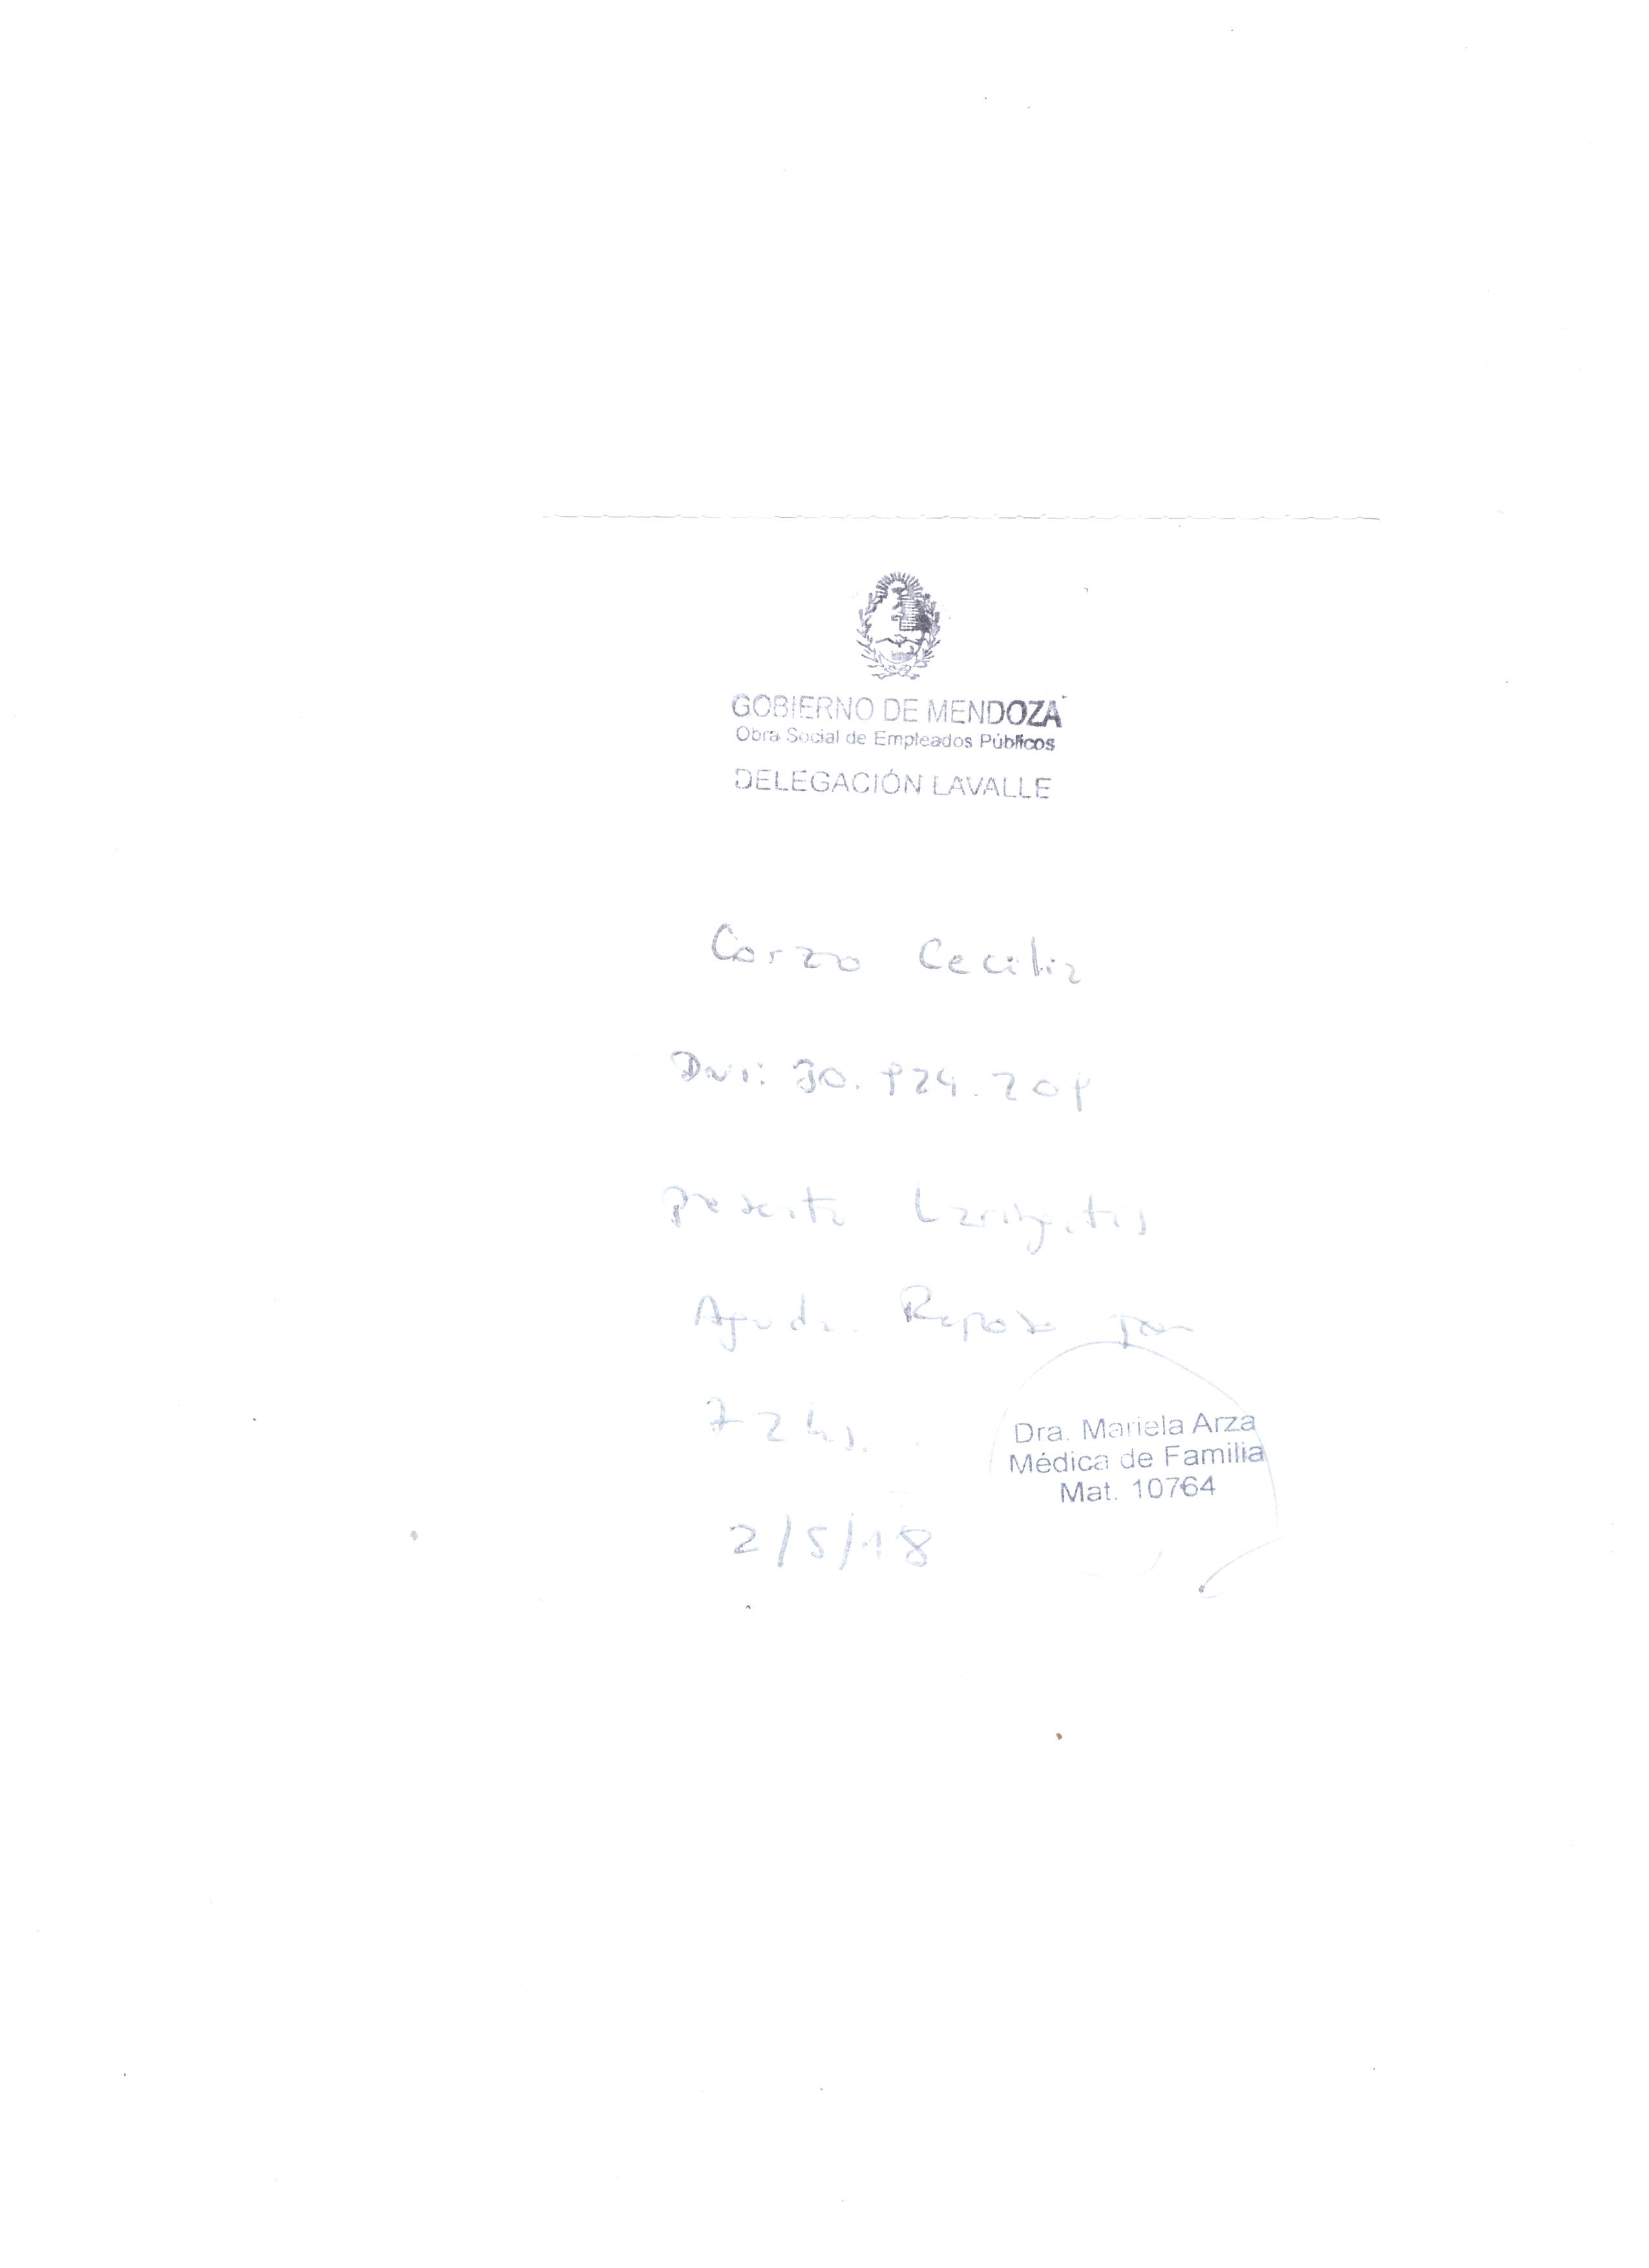 GOBIERNO DE MENDOZA
Obra Social de Empleados Públicos
DELEGACIÓN LAVALLE
Corzo Cecilia
Dni:
presenta Laringitis
Aguda. Reposo por
72 hs.
Dra. Mariela Arza
Médica de Familia
Mat. 10764
2/5/18